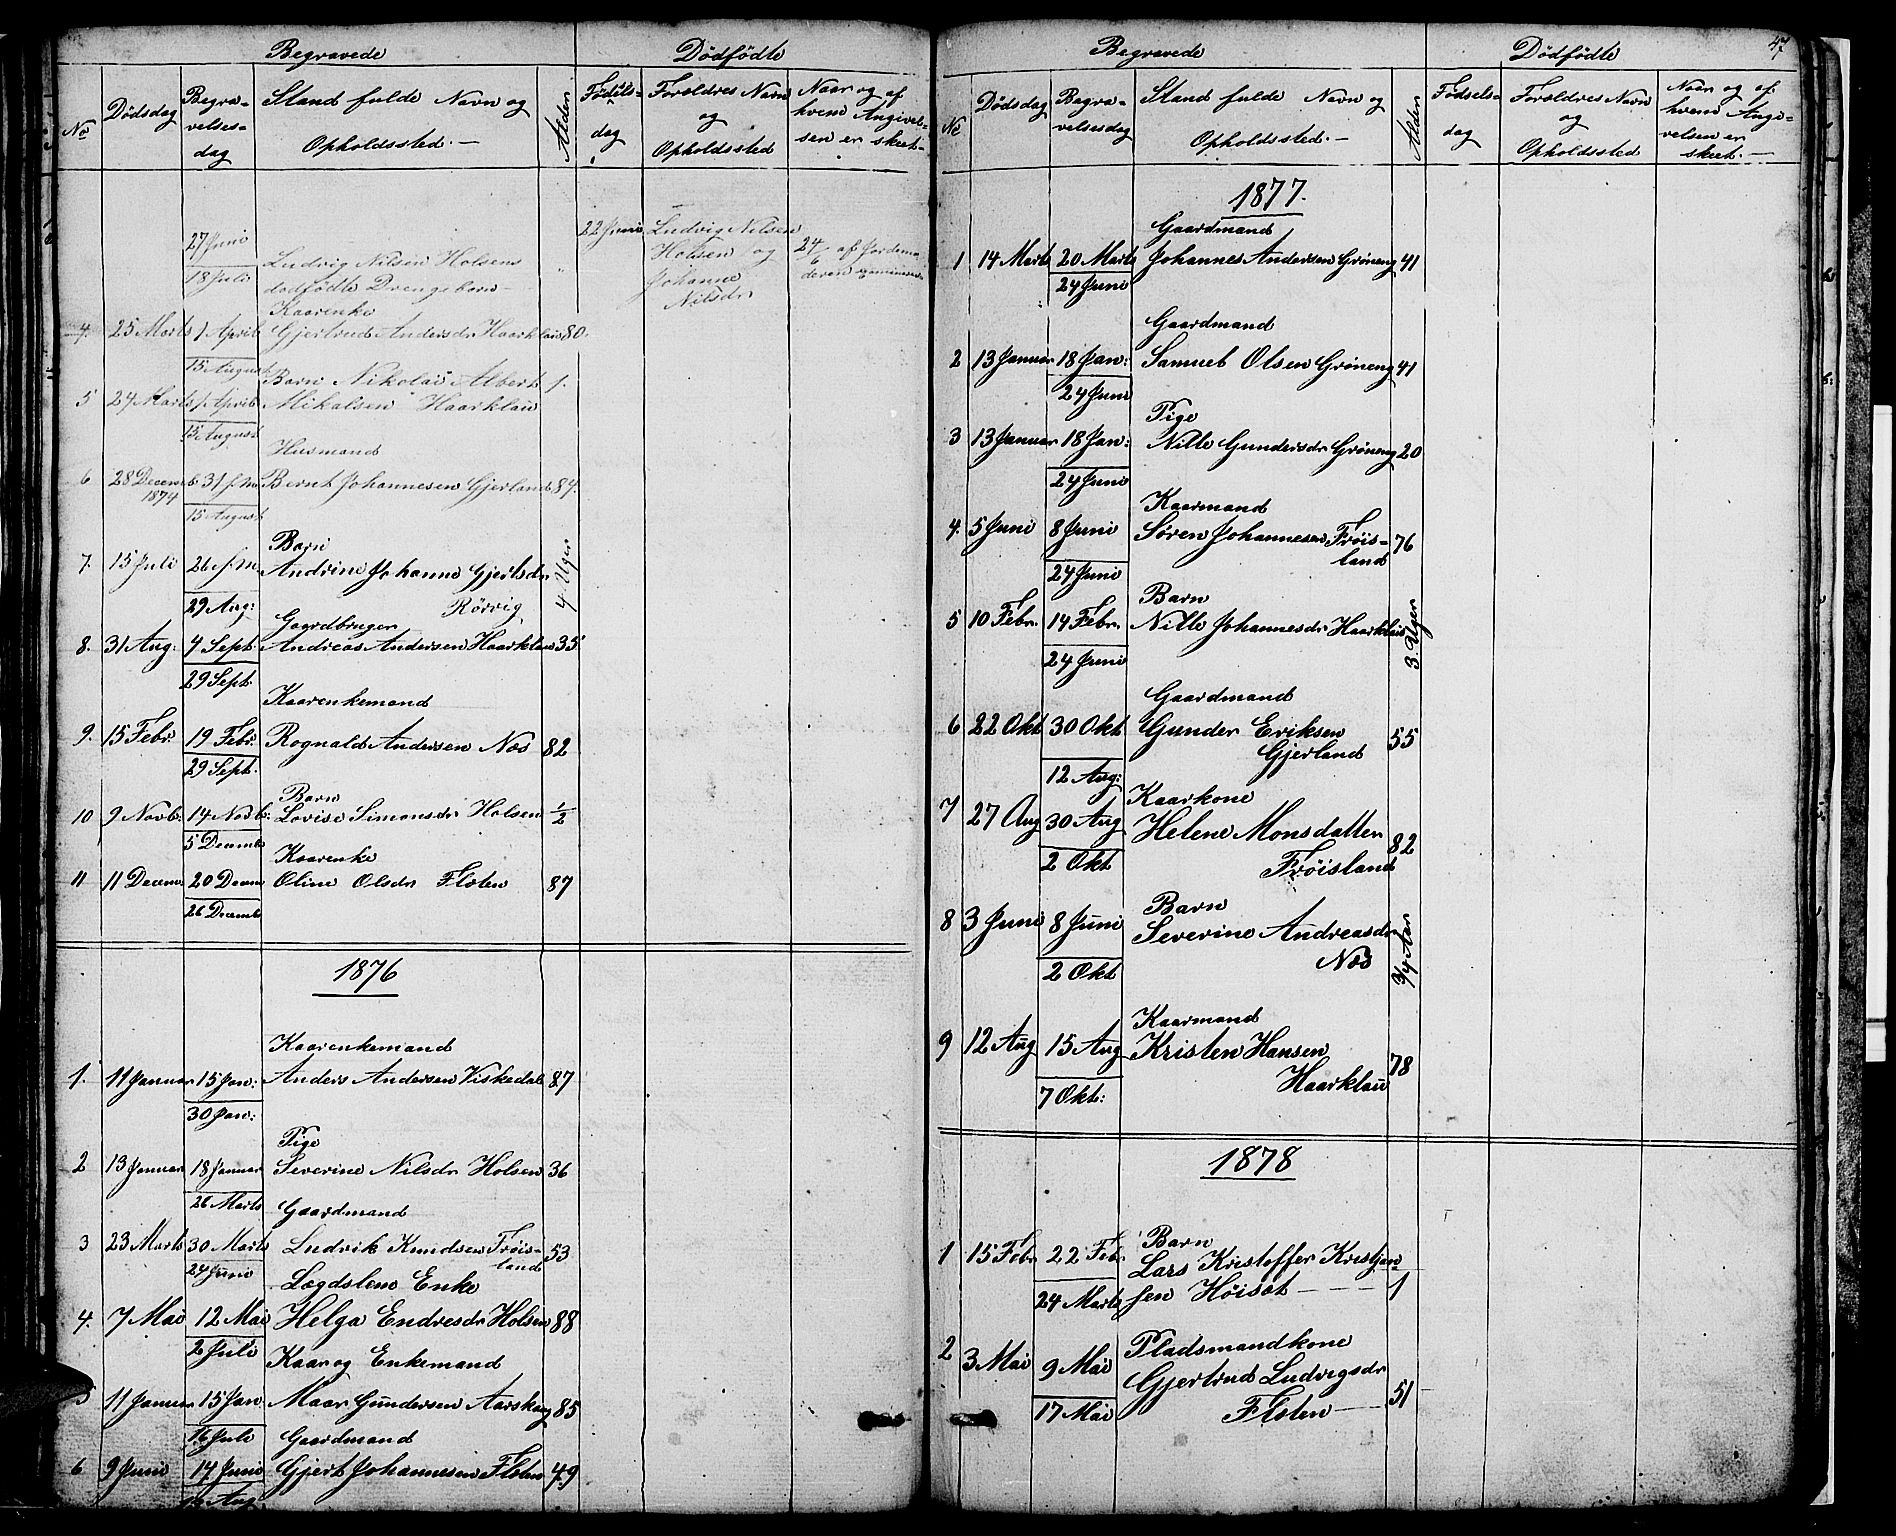 Begravede
Dödfödte
No
Dödsdag
Begra-
velses-
dag
Stand fulde Navn og
Opholdssted.—
Alder
Födsels-
dag
Forældres Navn
og
Opholdssted
Naar og af
hvem Angivel-
sen er skeet.
27 Juni
18 Juli
Ludvig Nilsen Holsens
dødfödte Drengebarn
22 Juni
Ludvig Nilsen
Holsen og
Johanne
Nilsdr
24/6 af Jordemo-
deren
Kaarenke
4. 25 Marts 1 April Gjertrud Andersdr Haarklau 80.
15 August
Barn Nikolai Albert 1.
5 24 Marts 1 April Mikalsen Haarklau
15 August
Husmand
6 28 Decem 1874 31 f.m. Bernt Johannesen Gjerland 84.
15 August
Barn
7. 15 Juli 26 f.m. Andrine Johanne Gjertsdr 4 Uger
29 Aug: Rörvig
Gaardbruger
8. 31 Aug. 4 Sept. Andreas Andersen Haarklau 35
29 Sept.
Kaarenkemand
9. 15 Febr. 19 Febr. Rognald Andersen Næs 82
29 Sept.
Barn
10 9 Novb. 14 Novb. Lovise Simonsdr Holsen 1/2
5 Decemb
Kaarenke
11 11 Decem 20 Decem Oline Olsdr Flæten 87
26 Decemb
1876
Kaarenkemand
1. 11 Januar 15 Jan: Anders Andersen Viskedal 87
30 Jan:
Pige
2 13 Januar 18 Januar Severine Nilsdr Holsen 36
26 Marts
Gaardmand
3 23 Marts 30 Marts Ludvik Knudsen Frøis-
land 53
24 Juni
Lægdslem Enke
4. 7 Mai 12 Mai Helga Endresdr Holsen 88
2 Juli
Kaar og Enkemand
5 11 Januar 15 Jan Maar Gundersen Aarskog 85
16 Juli
Gaardmand
6 9 Juni 14 Juni Gjert Johannesen Flæten 49
Aug.
47
Begravede
Dödfödte
No
Dödsdag
Begra-
velsesdag
Stand fulde Navn og
Opholdssted.—
Alder
Födsels-
dag
Forældres Navn
og
Opholdssted
Naar og af
hvem Angi-
velsen er
skeet.—
1877.
Gaardmand
1 14 Marts 20 Marts Johannes Andersen Grøneng 41
24 Juni
Gaardmand
2 13 Januar 18 Jan: Samuel Olsen Grøneng 41
24 Juni
Pige
3 13 Januar 18 Jan: Nille Gundersdr Grøneng 20
24 Juni
Kaarmand
4. 5 Juni 8 Juni Søren Johannesen Frøis-
land 76
24 Juni
Barn
5 10 Febr. 14 Febr. Nille Johannesdr Haarklau 3. Uger
24 Juni
Gaardmand
6 22 Okt 30 Okt Gunder Eriksen
Gjerland 55
12 Aug:
Kaarkone
7 27 Aug 30 Aug Helene Monsdatter 82
2 Okt Frøisland
Barn
8 3 Juni 8 Juni Severine Andreasdr
Næs 3/4 Aar
2 Okt
Kaarmand
9 12 Aug 15 Aug Kristen Hansen
Haarklau 78
7 Okt:
1878
Barn
1 15 Febr 22 Feb. Lars Kristoffer Kristjan-
24 Marts sen Höisæt 1
Pladsmandkone
2 3 Mai 9 Mai Gjertrud Ludvigsdr
17 Mai Flæten 51